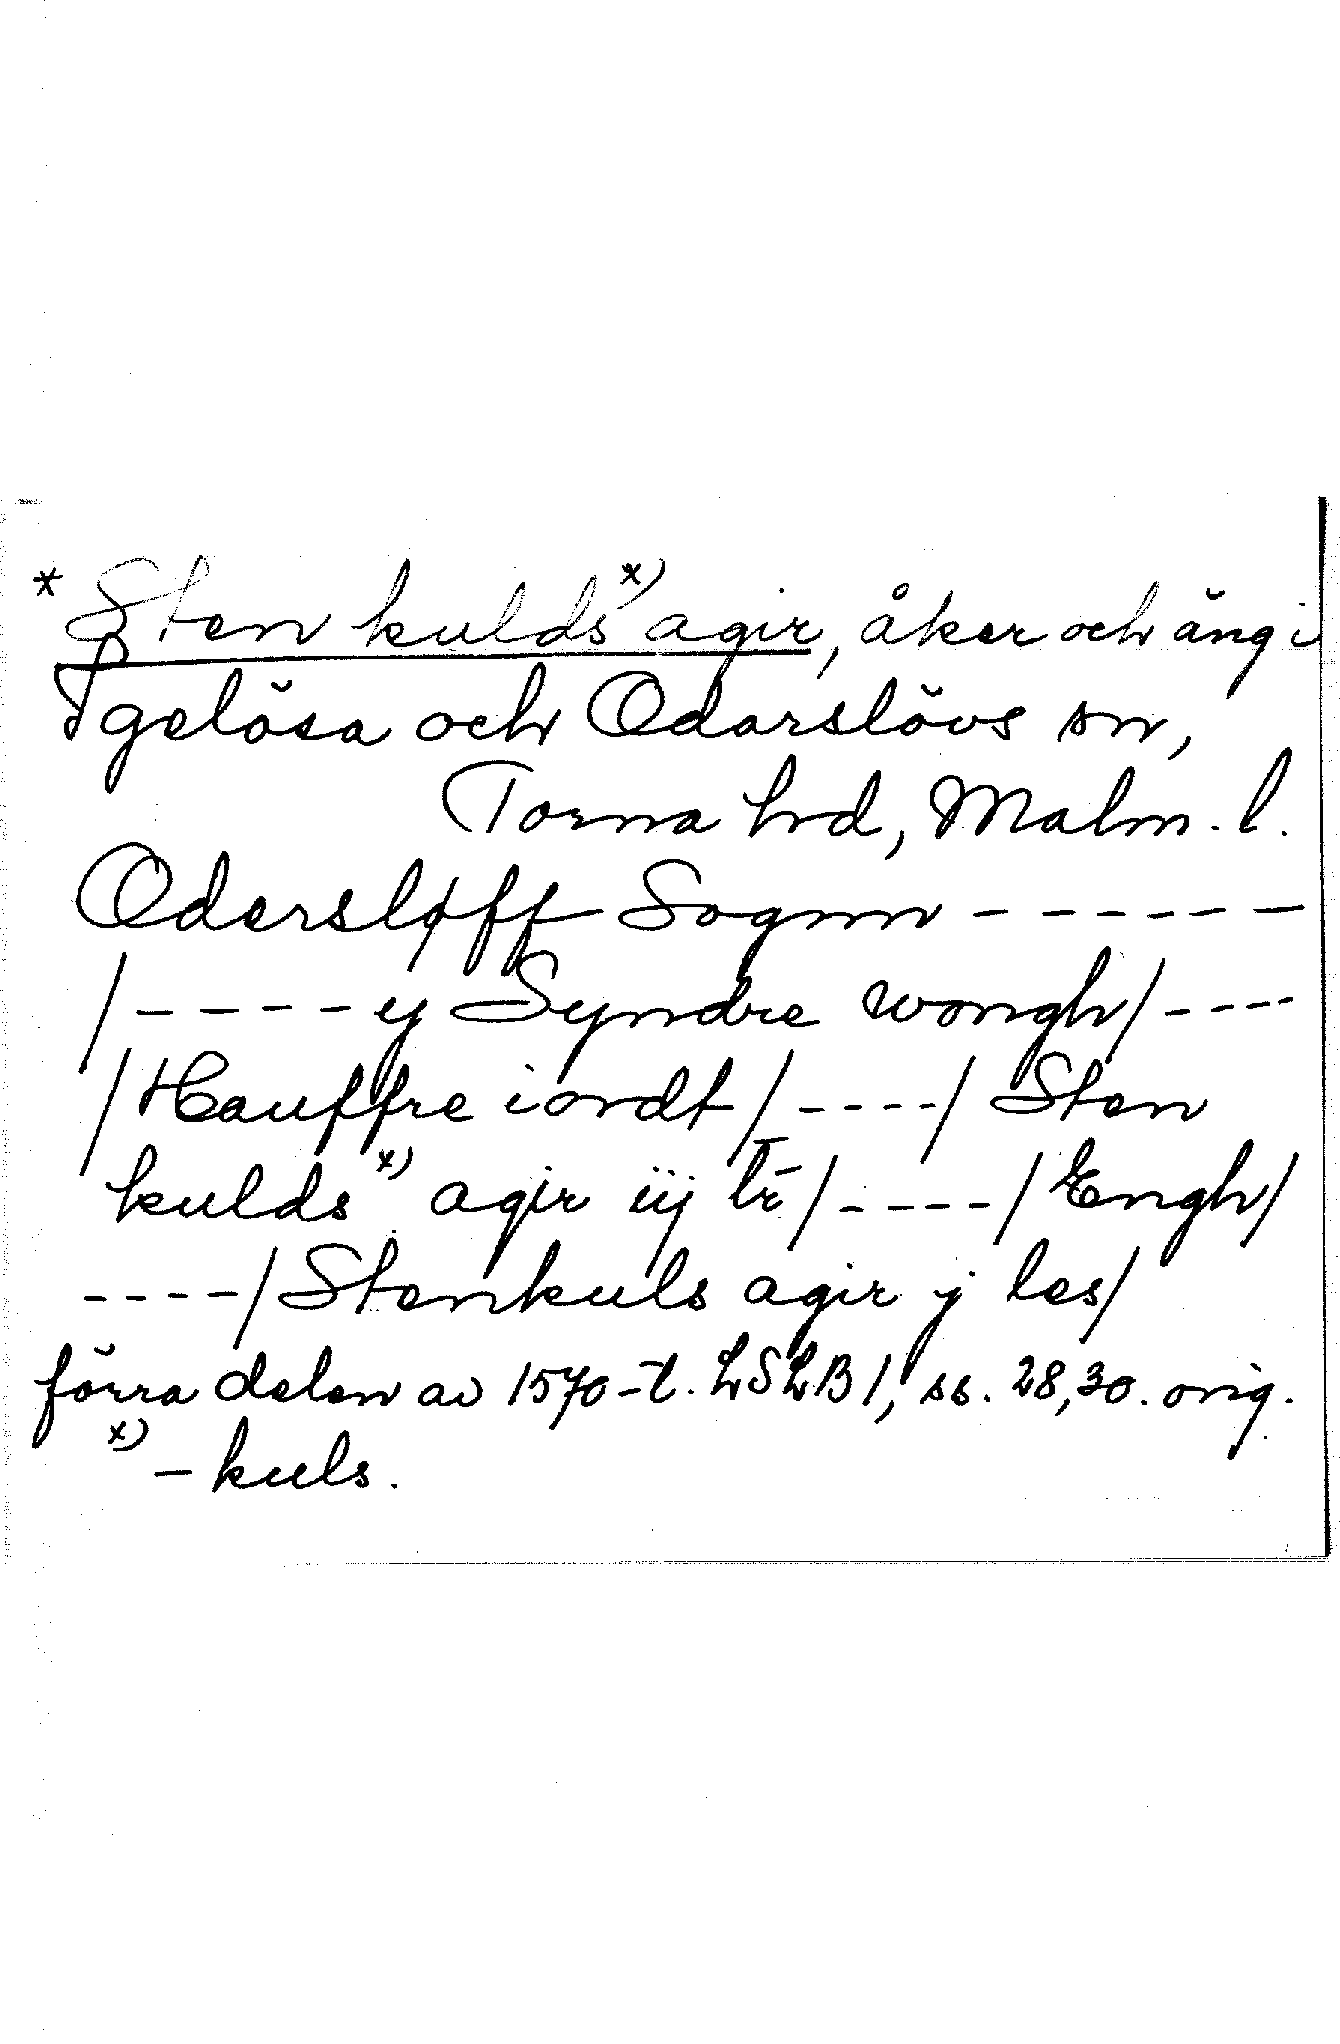 * Sten kulds x) agir, åker och äng i
Igelösa och Odarslövs sn,
Torna hrd, Malm. l.
Odersløff Sognn ------
/-----y Syndre wongh/----
/Hauffre iordt/----/ Sten
kulds x) agir iij lr̄/----/Engh/
----/Stenkuls agir j les/
förra delen av 1570-t. LSLB 1, ss. 28,30. orig.
x) - kuls.